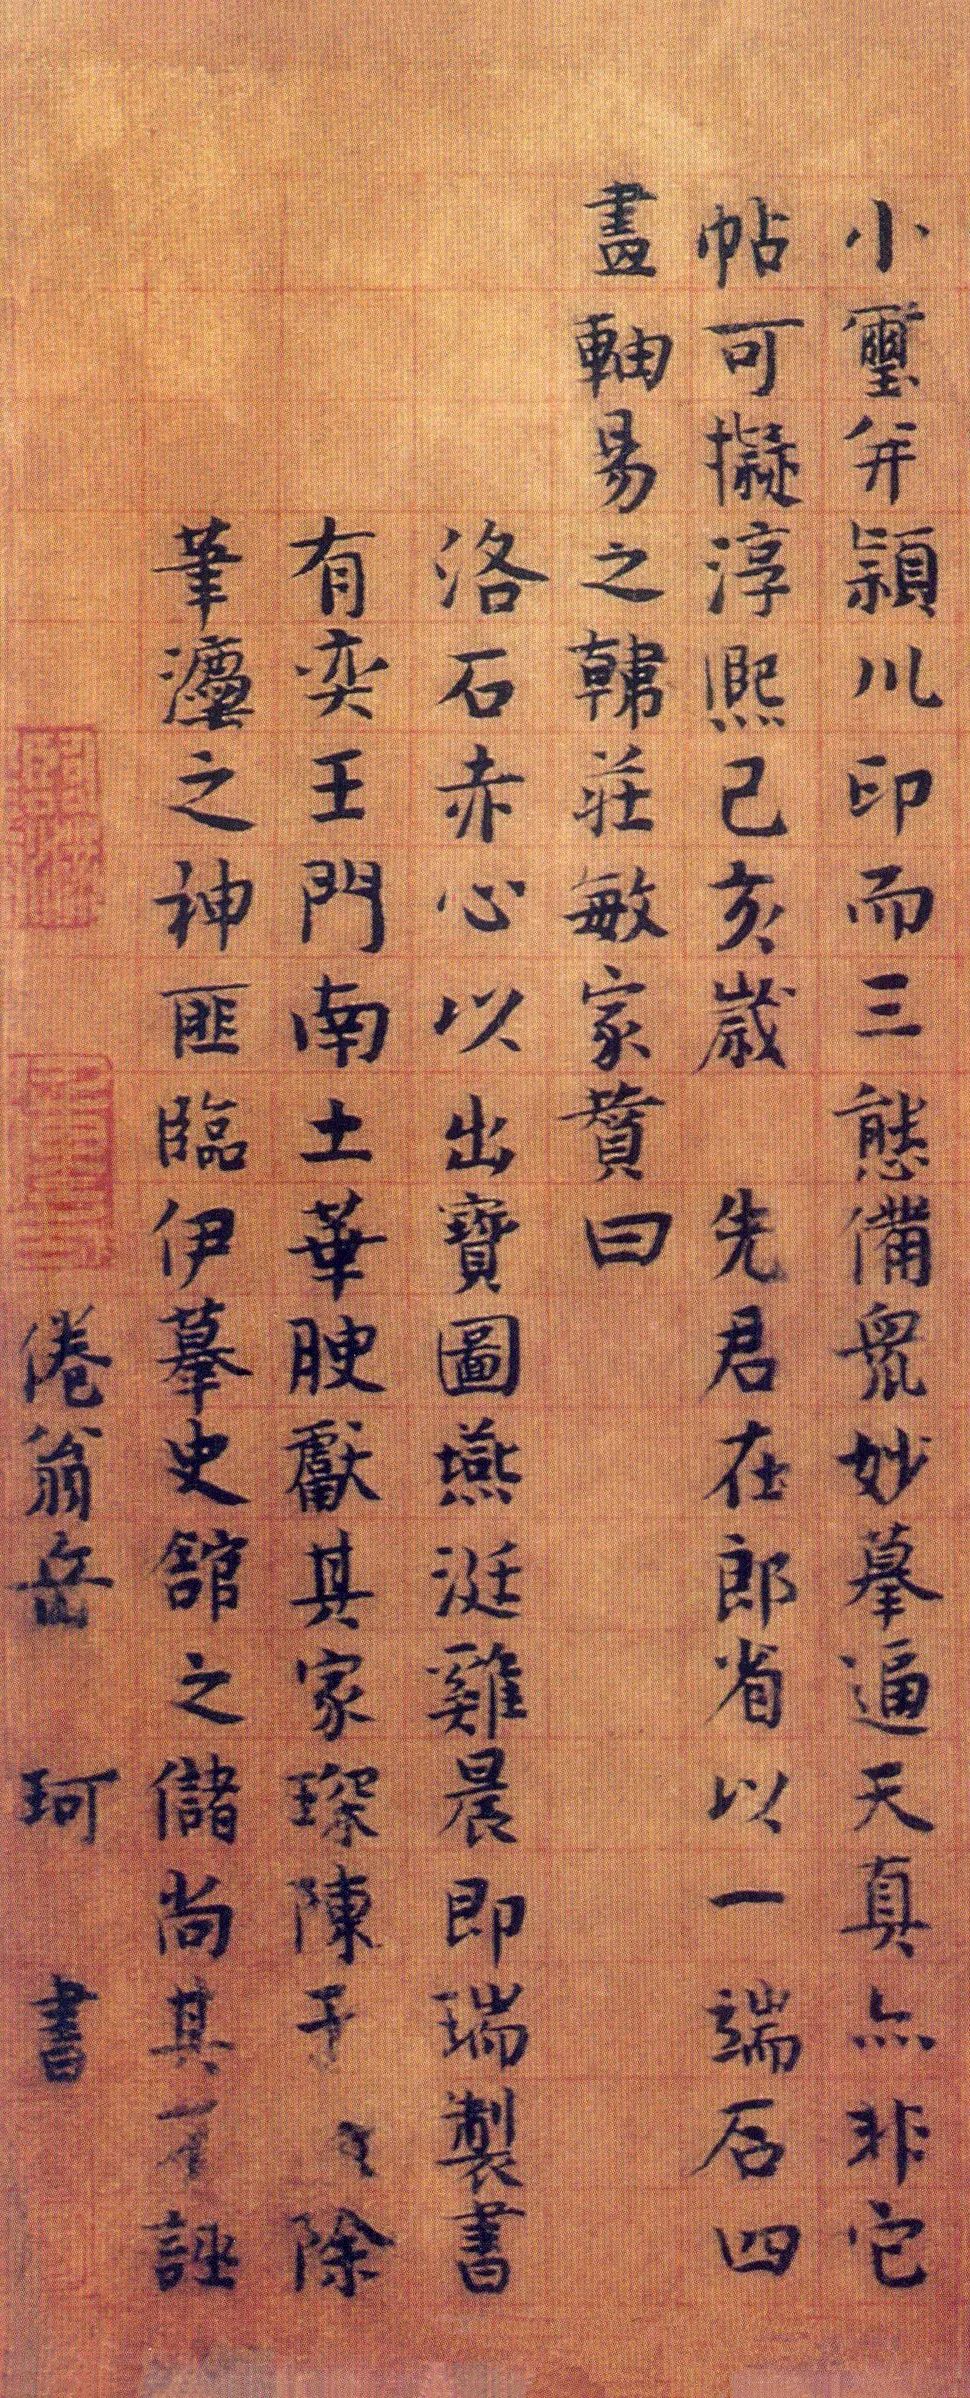 小璽并潁川印而三態備眾妙摹逼天真亦非它
帖可擬淳熙己亥歲 先君在郎省以一端石四
畫軸易之韓莊敏家贊曰
洛石赤心以出寶圖燕涎雞晨即瑞製書
有奕王門南土華腴獻其家琛陳于 除
筆瀍之神匪臨伊摹史館之儲尚其 誣
倦翁岳 珂 書